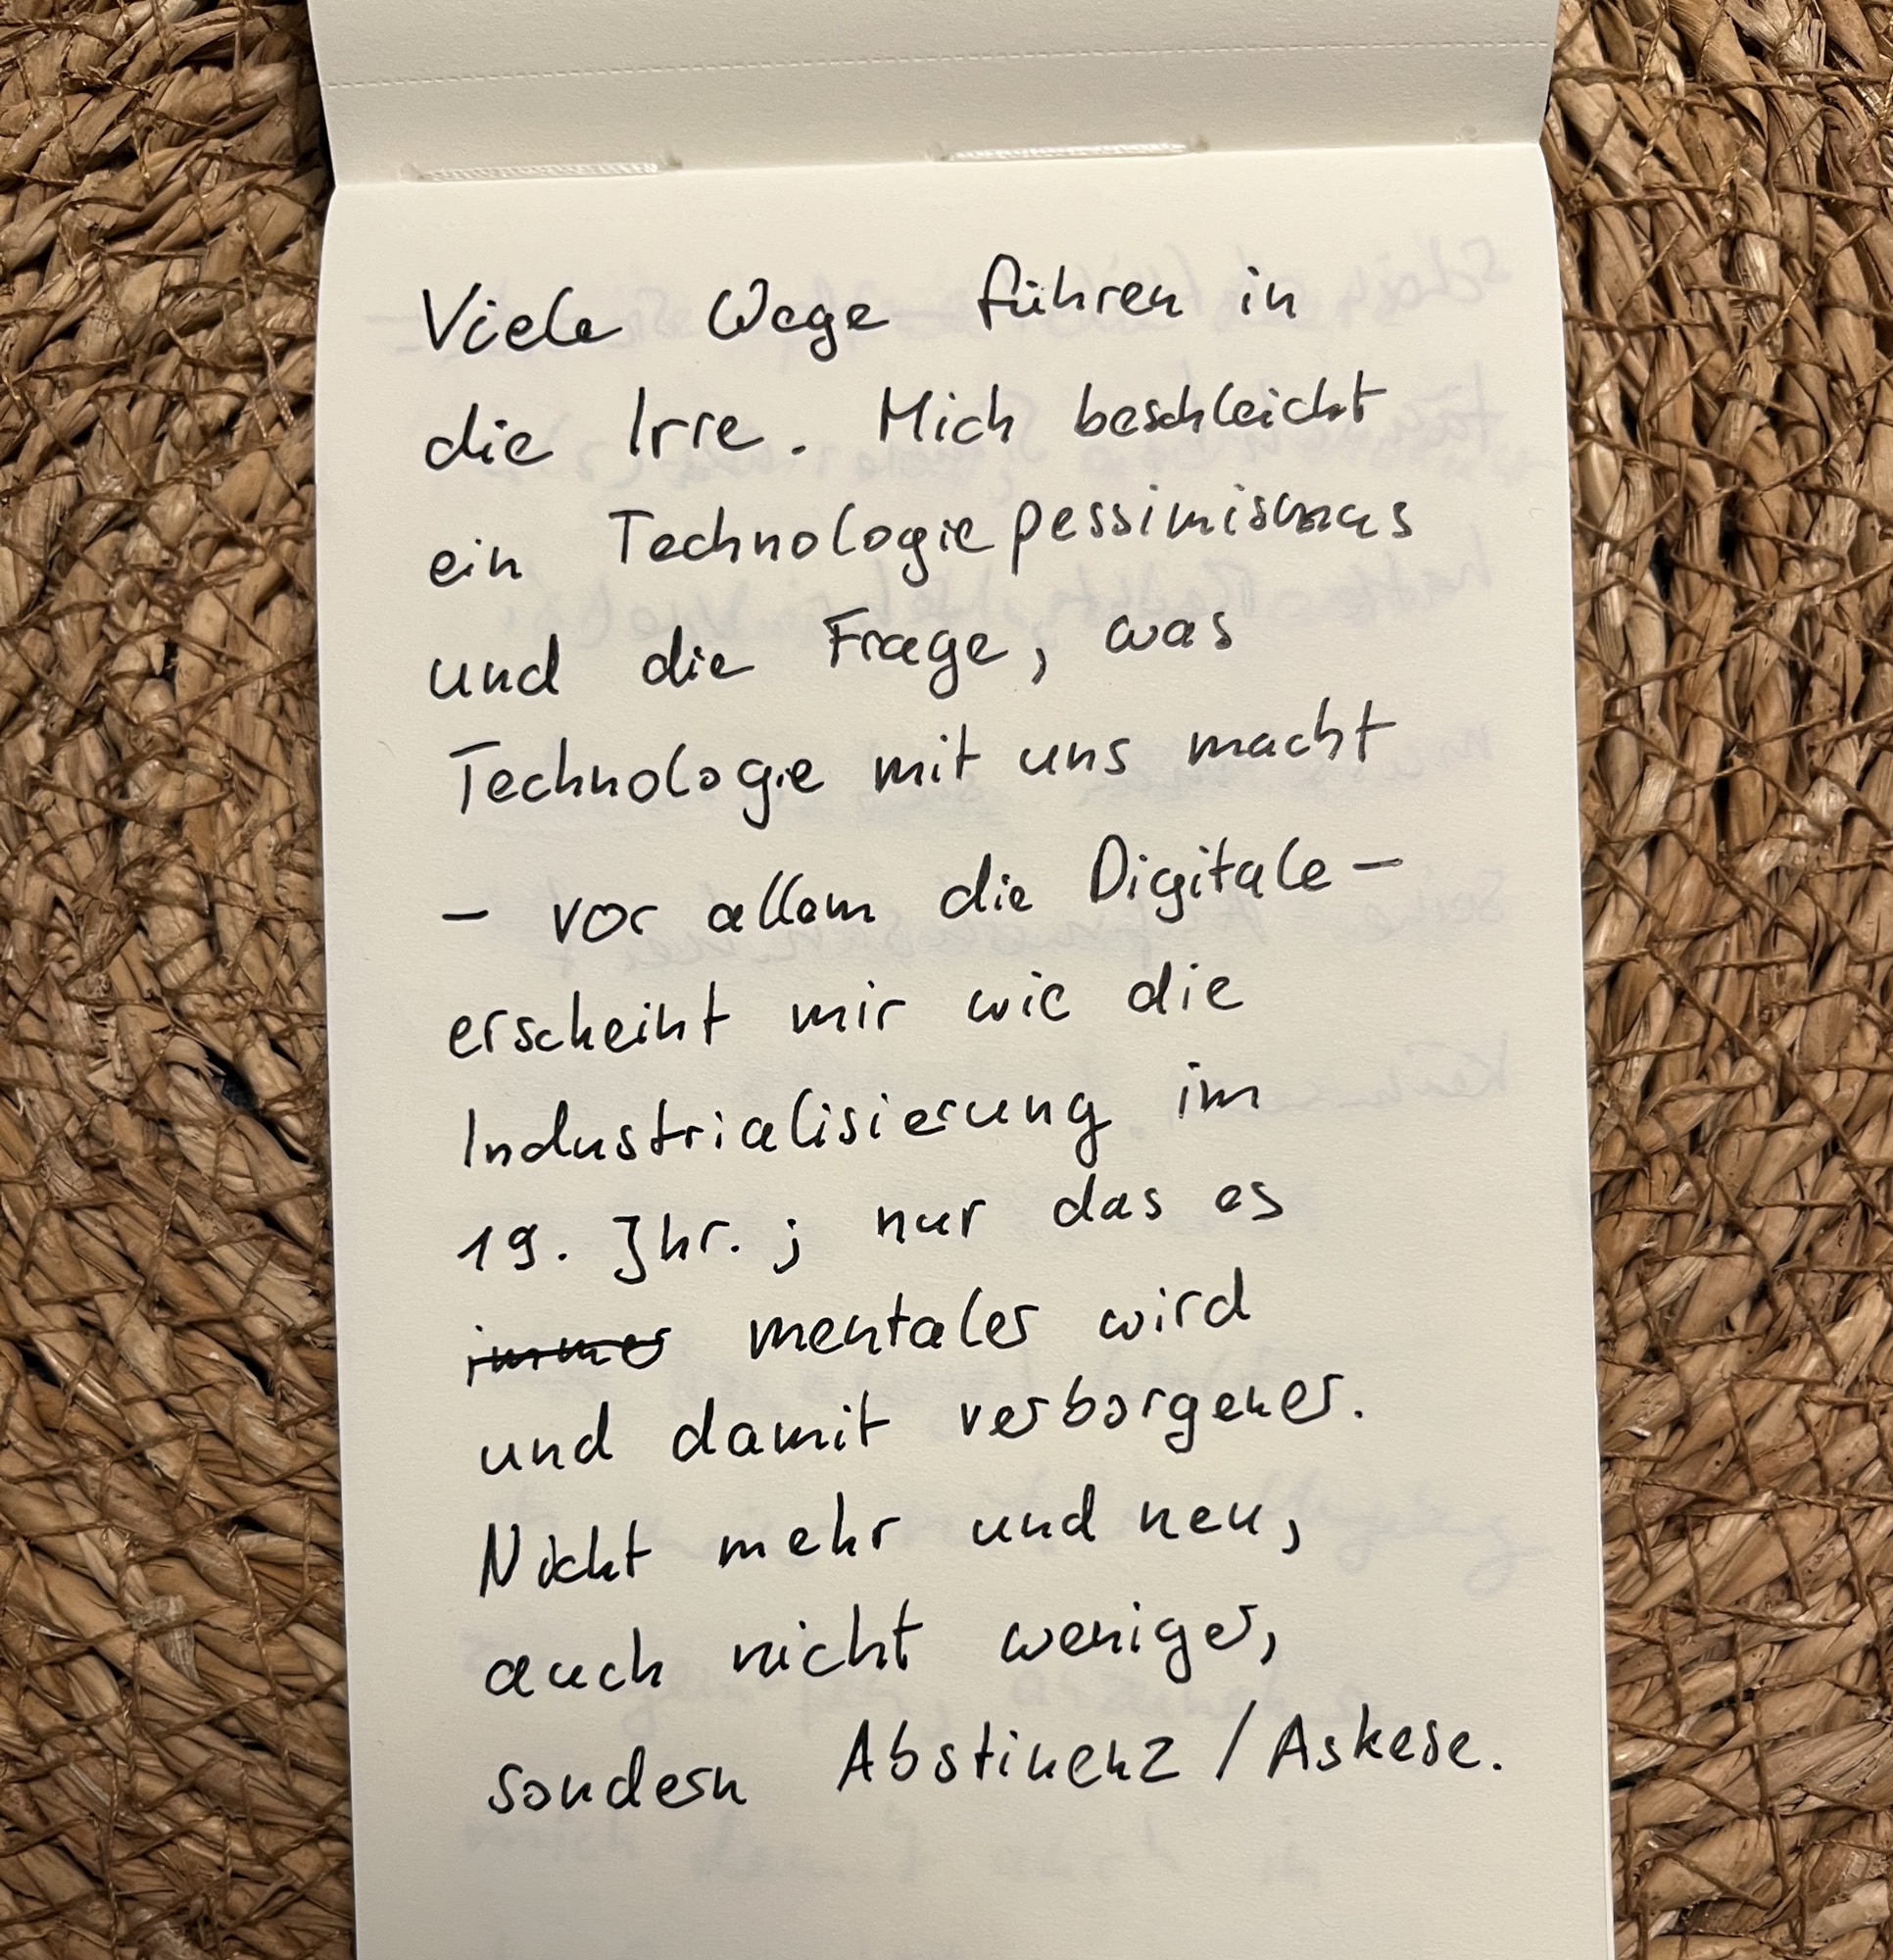 Viele Wege führen in
die Irre. Mich beschleicht
ein Technologiepessimismus
und die Frage, was
Technologie mit uns macht
– vor allem die Digitale –
erscheint mir wie die
Industrialisierung im
19. Jhr.; nur das es
immer mentaler wird
und damit verborgener.
Nicht mehr und neu,
auch nicht weniger,
sondern Abstinenz / Askese.